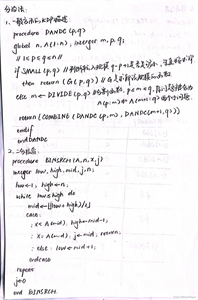 分治法:
1. 一般方法
procedure DANDC(p,q)
global n, A(1:n); integer m,p,q;
// 1≤p≤q≤n //
if SMALL(p,q)
then return(G(p,q))
else m←DIVIDE(p,q)
return(COMBINE(DANDC(p,m), DANDC(m+1,q)))
endif
end DANDC
2.
procedure BINSRCH(A,n,x,j)
integer low, high, mid, j, n;
low←1; high←n;
while low≤high do
mid←⌊(low+high)/2⌋
case
: x<A(mid): high←mid-1;
: x=A(mid): j←mid; return;
: else: low←mid+1;
endcase
repeat
j←0
end BINSRCH